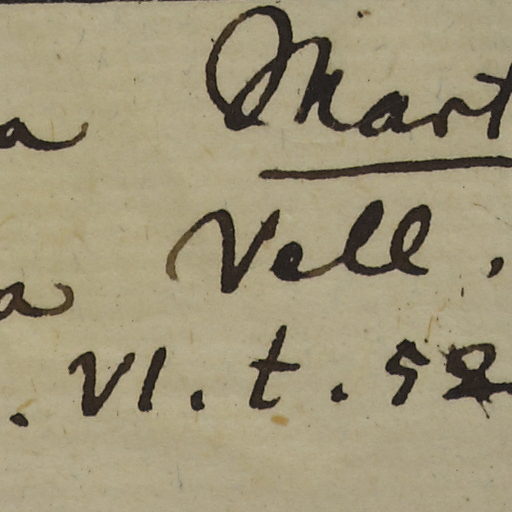 a Mart
a Vell.
. VI. t. 52